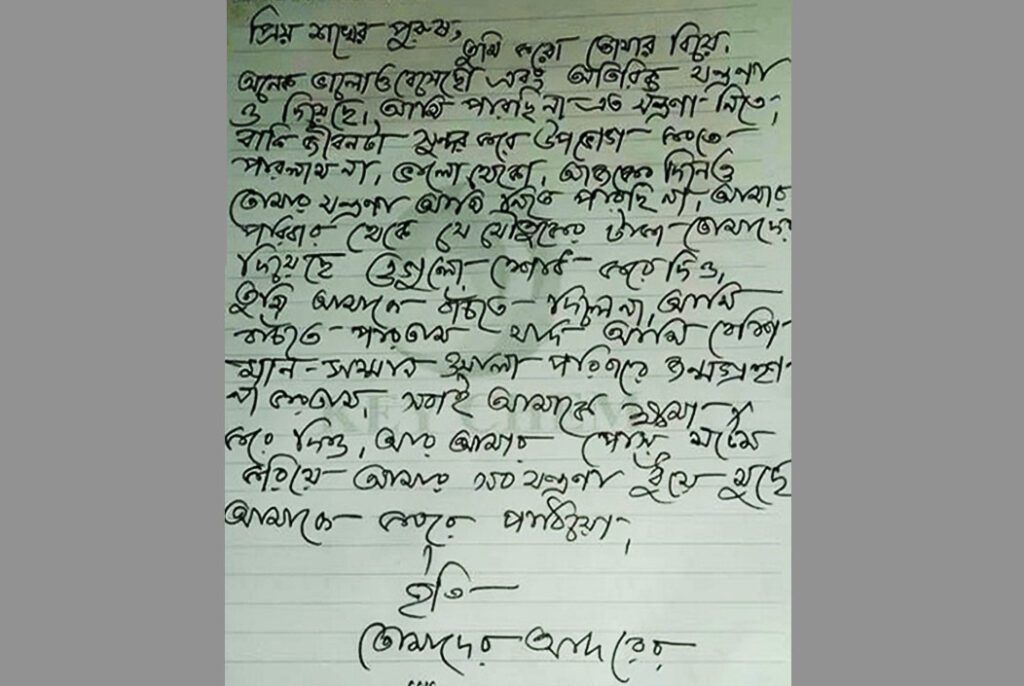 প্রিয় শখের পুরুষ,
তুমি করো তোমার বিয়ে।
অনেক ভালোও বেসেছো এবং অতিরিক্ত যন্ত্রণা
ও দিয়েছে, আমি পারছি না এত যন্ত্রণা নিতে,
বাকি জীবনটা সুন্দর করে উপভোগ করতে
পারলাম না, ভালো থেকো, আজকের দিনেও
তোমার যন্ত্রণা আমি নিতে পারছি না, আমার
পরিবার থেকে যে যৌতুকের টাকা তোমাদের
দিয়েছে ওগুলো শোধ করে দিও,
তুমি আমাকে বাঁচতে দিলে না, আমি
বাঁচতে পারতাম যদি আমি বেশি
মান-সম্মান ওয়ালা পরিবারে জন্মগ্রহ
ণ করতাম, সবাই আমাকে ক্ষমা
করে দিও, আর আমার
করিয়ে আমার সব যন্ত্রণা ধুঁয়ে মুছে
আমাকে কবরে পাঠাইয়া,
ইতি—
তোমাদের আদরের
KEY CHEM